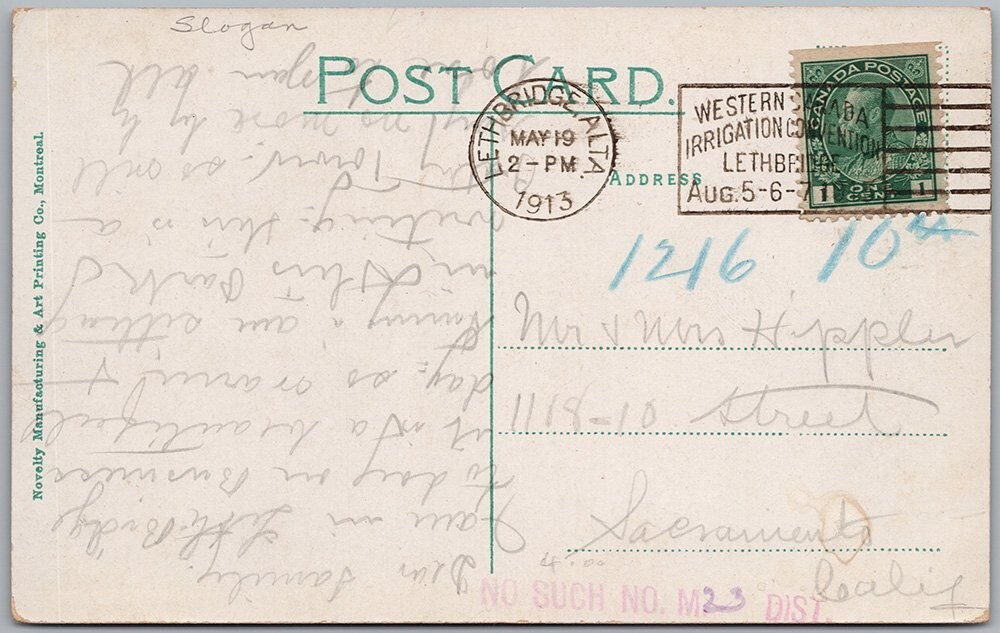 Slogan
POST CARD.
LETHBRIDGE, ALTA
MAY 19
2-PM
1913
WESTERN CANADA
IRRIGATION CONVENTION
LETHBRIDGE
AUG. 5-6-7
CANADA POSTAGE
1 ONE CENT 1
ADDRESS
1216 10th
Mr & Mrs Hippler
1118-10 Street
Sacramento
Calif
NO SUCH NO. M23 DIST.
Novelty Manufacturing & Art Printing Co., Montreal.
Dear Family.
I am in Leth Bridge
to day on Business
it is a beautifull
day. so warm &
Sunny I am sitting
in this Park &
writing. this is a
Town. so will
no more by by